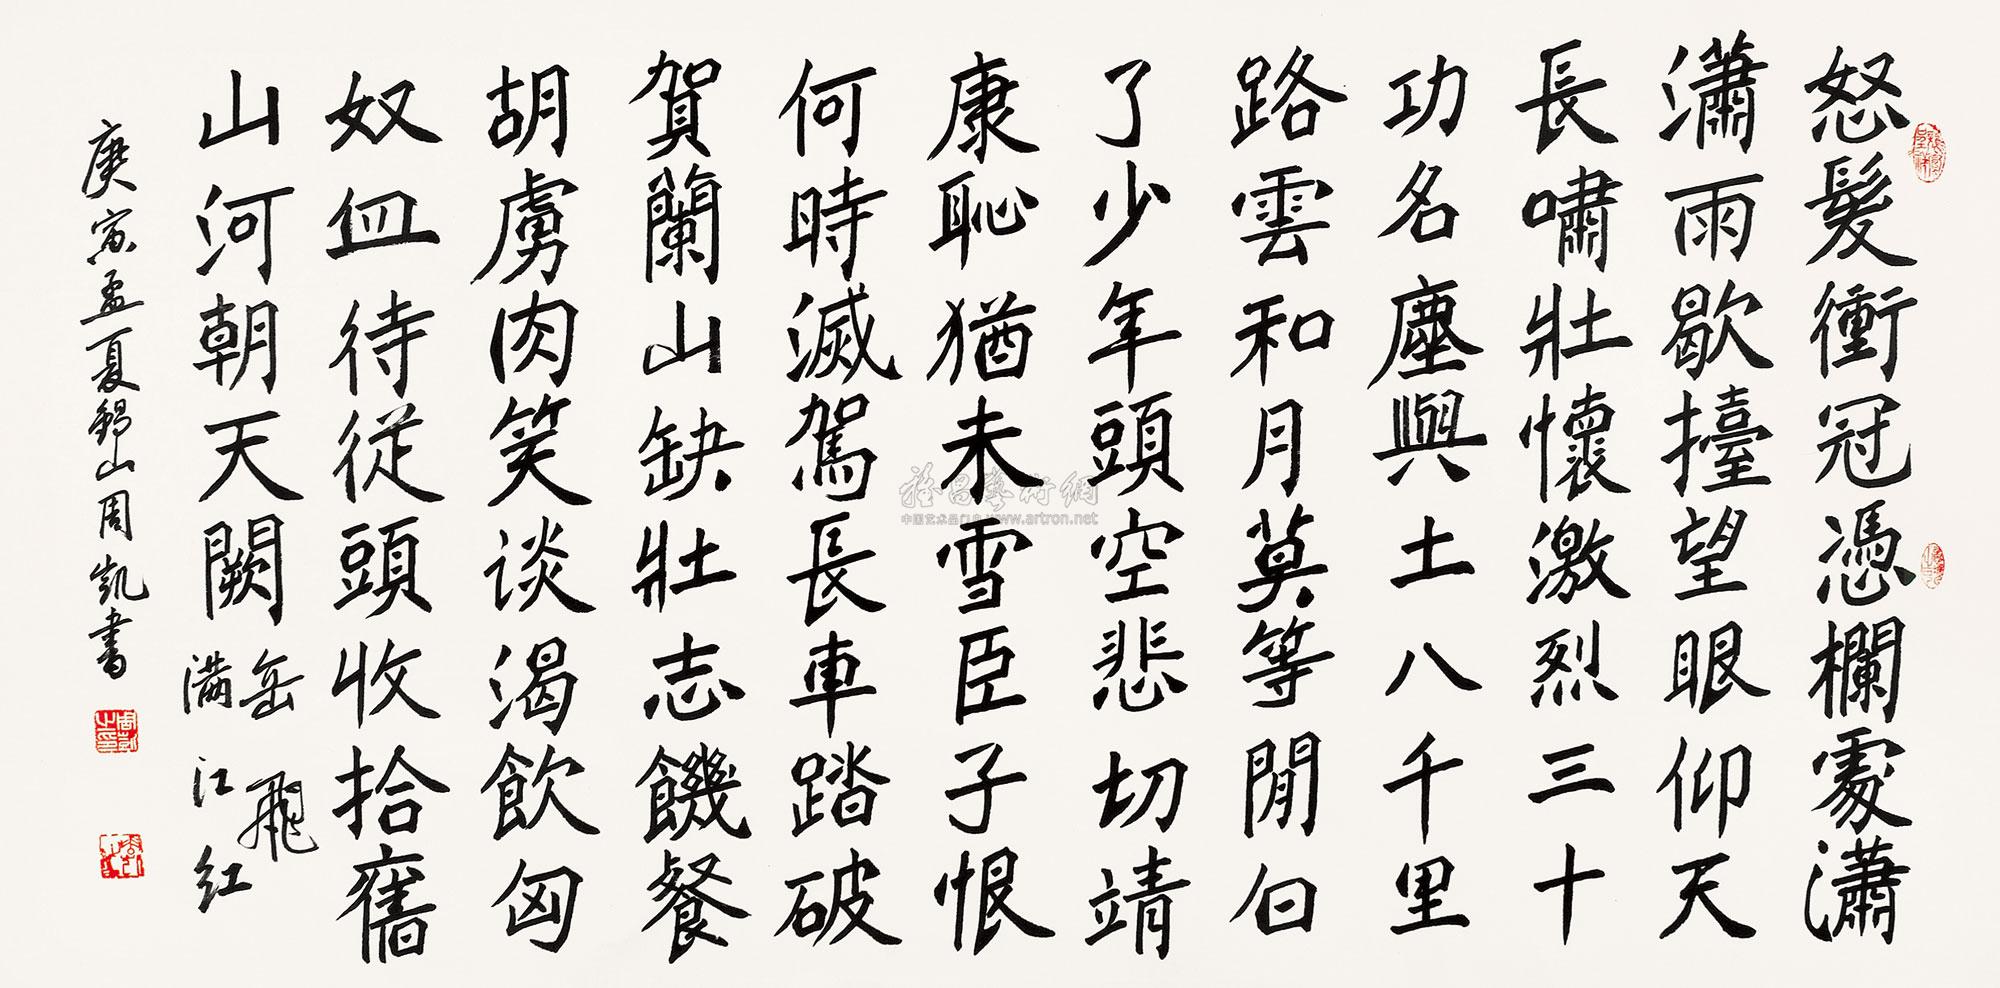 怒髮衝冠憑欄處瀟
瀟雨歇擡望眼仰天
長嘯壯懷激烈三十
功名塵與土八千里
路雲和月莫等閒白
了少年頭空悲切靖
康恥猶未雪臣子恨
何時滅駕長車踏破
賀蘭山缺壯志饑餐
胡虜肉笑談渴飲匈
奴血待從頭收拾舊
山河朝天闕
岳飛
滿江红
庚寅孟夏錫山周凱書
中国艺术品门户 www.artron.net